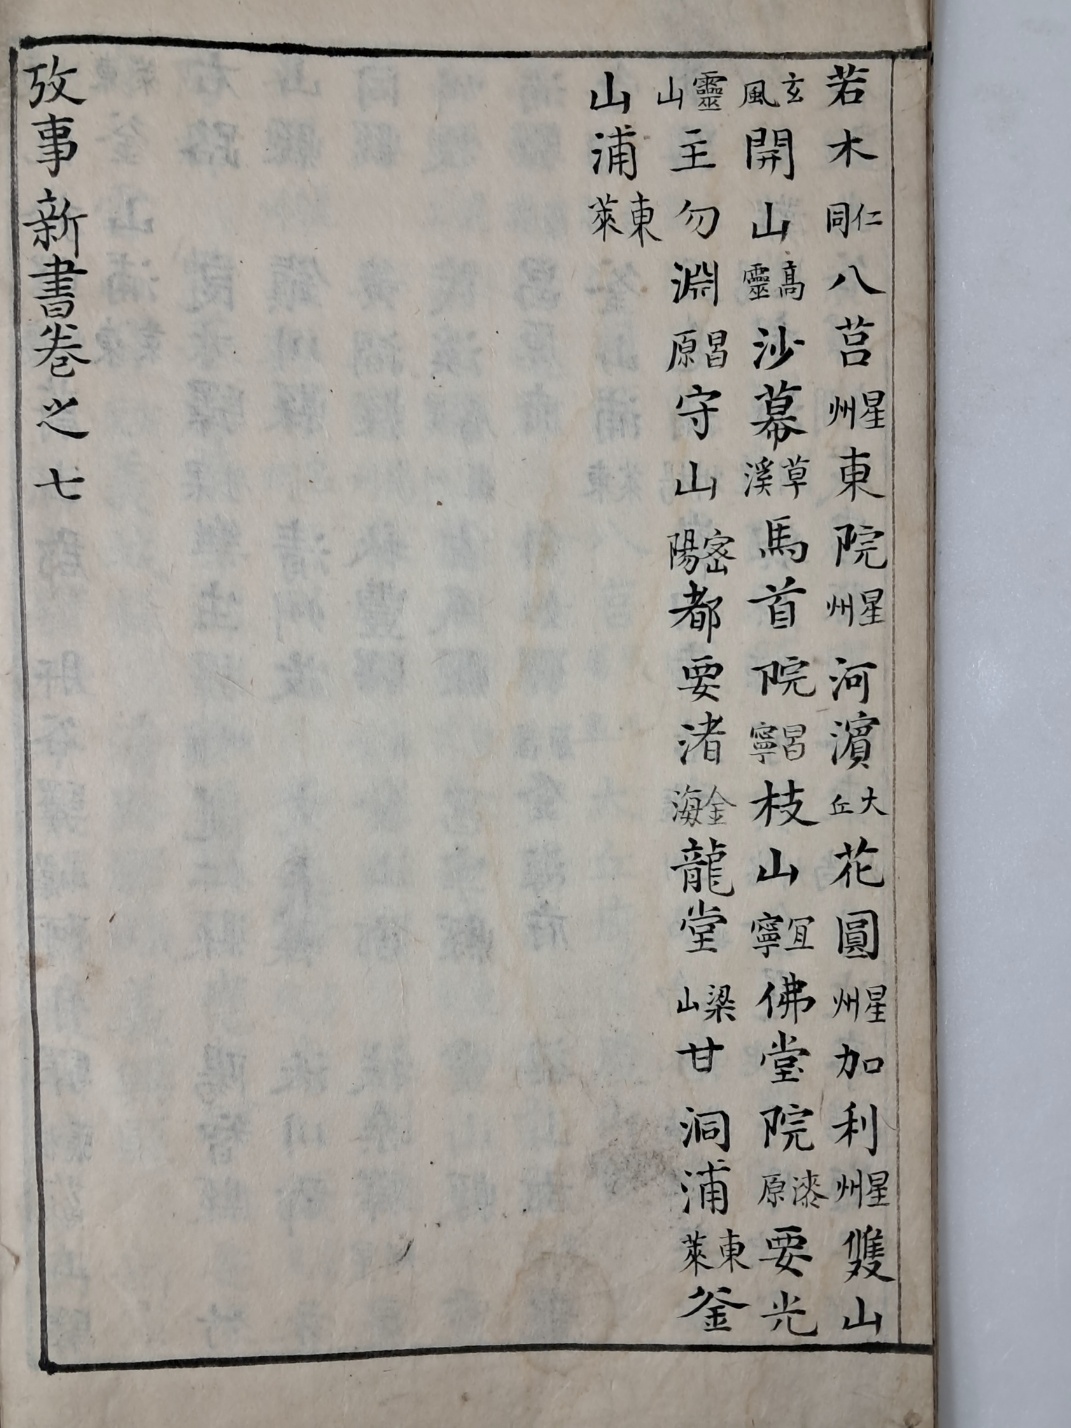 若木仁同八莒星州東院星州河濵大丘花圓星州加利星州雙山
玄風開山高靈沙幕草溪馬首院昌寧枝山宜寧佛堂院漆原要光
靈山主勿淵昌原守山密陽都要渚金海龍堂梁山甘洞浦東萊釜
山浦東萊
攷事新書卷之七